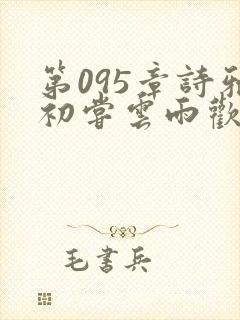 第095章詩雅
初嘗雲雨歡
毛書兵